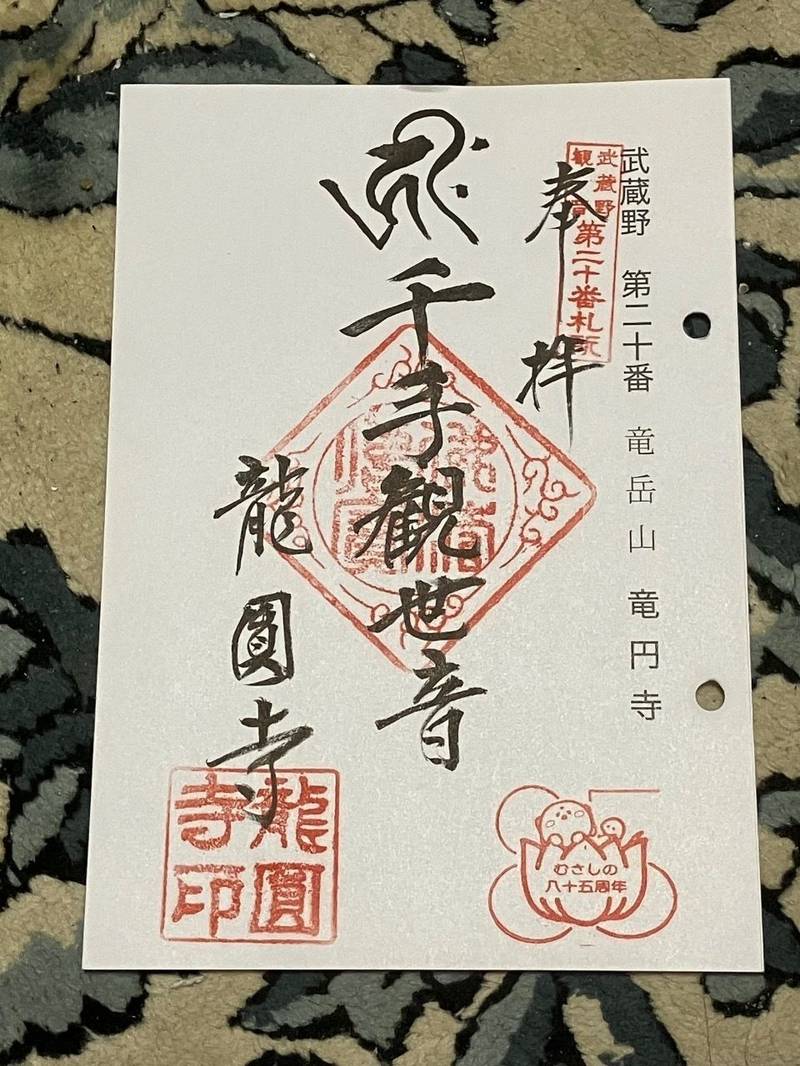 武蔵野　第二十番　竜岳山　竜円寺
武蔵野
観音
第二十番札所
奉拝
千手観世音
龍圓寺
龍圓
寺印
むさしの
八十五周年